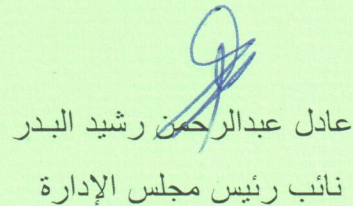 عادل عبدالرحمن رشيد البدر
نائب رئيس مجلس الإدارة